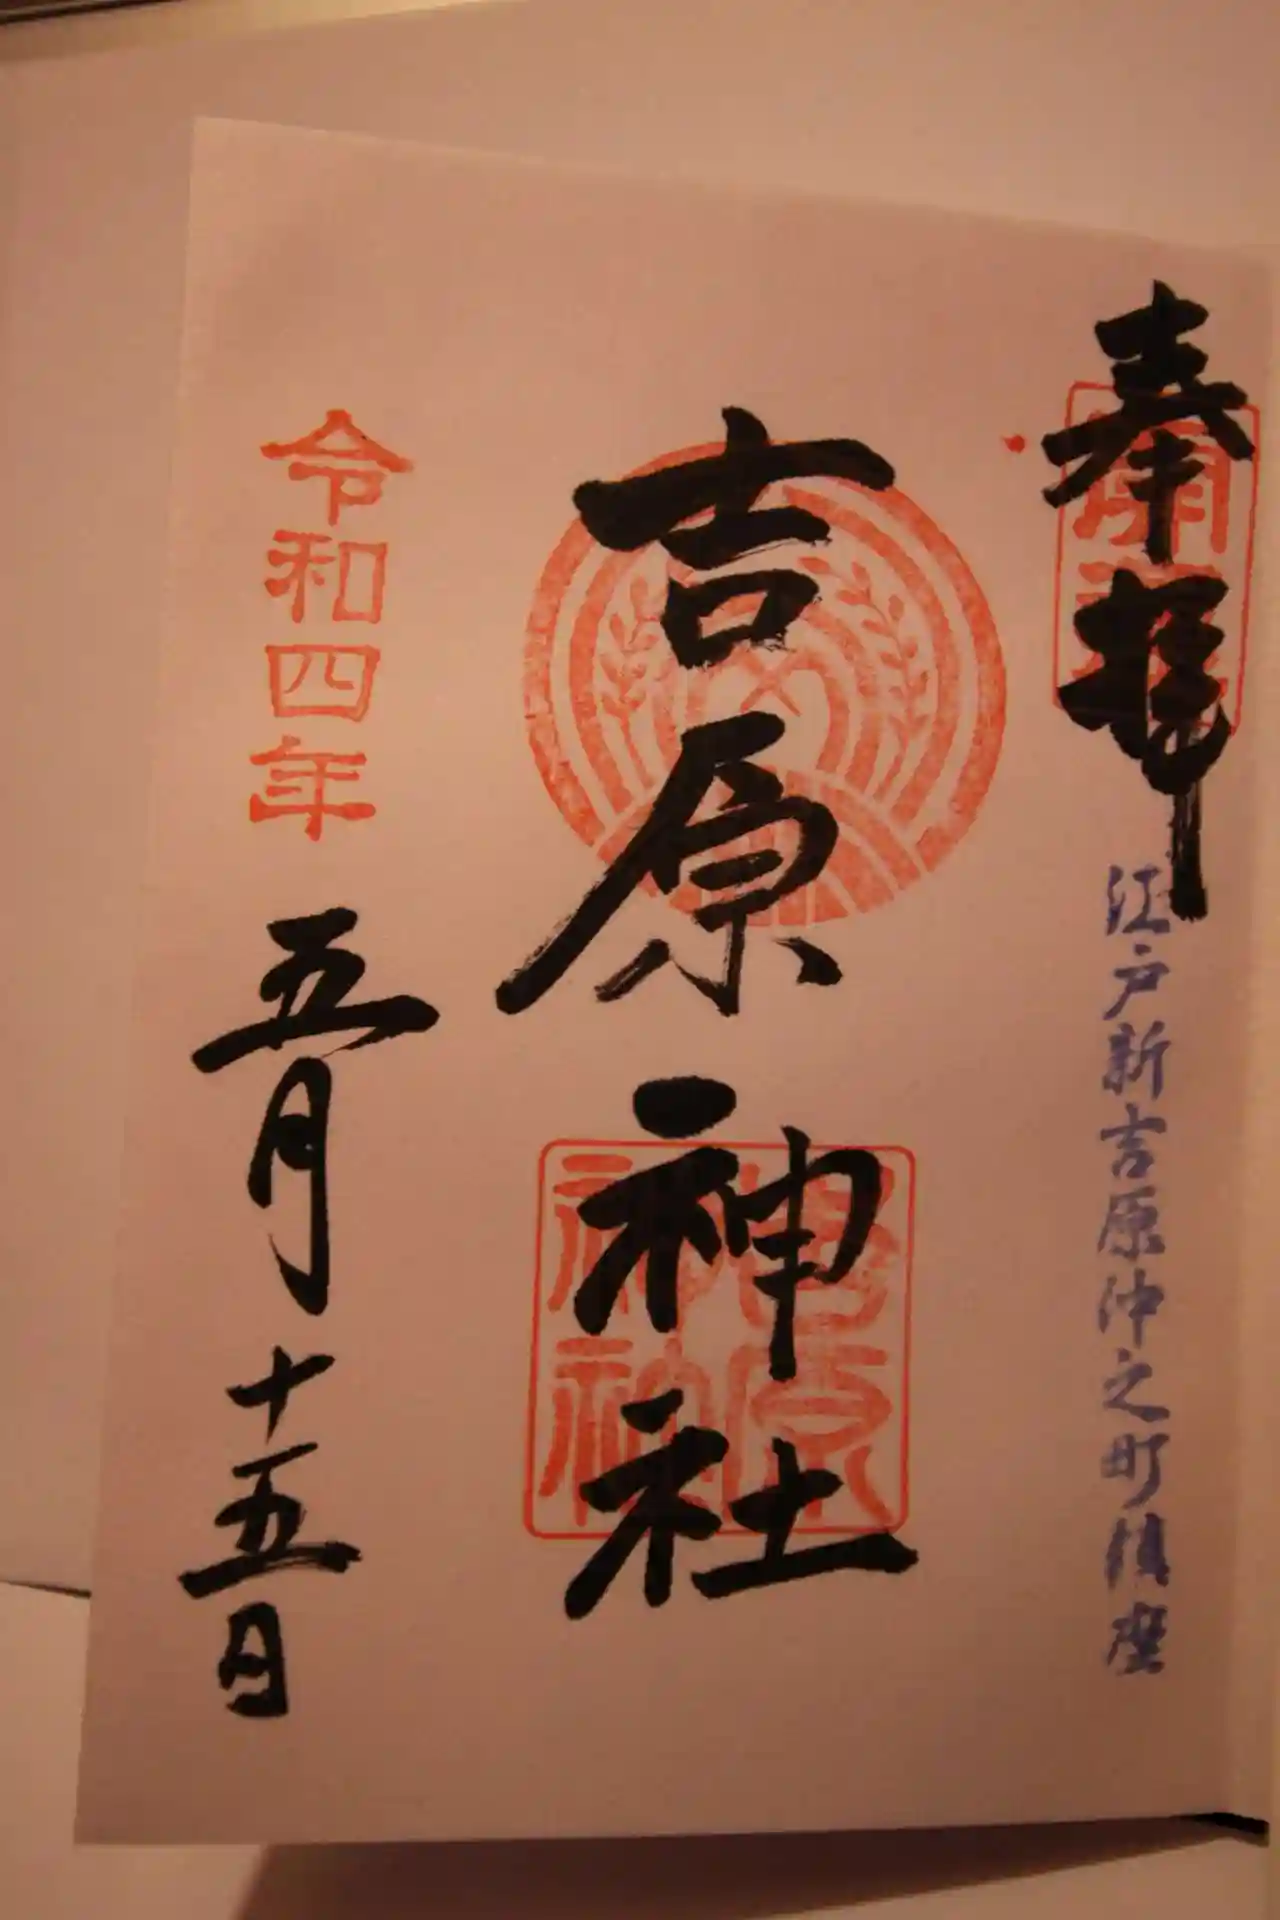 奉拝
江戸新吉原仲之町鎮座
吉原神社
吉原神社
令和四年
五月十五日